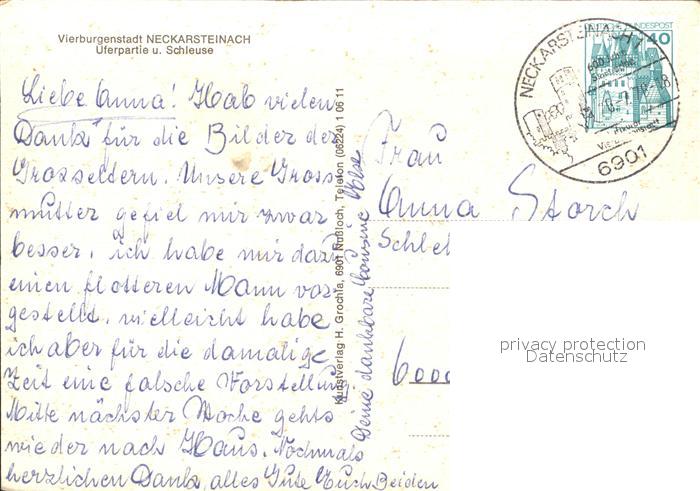 Vierburgenstadt NECKARSTEINACH
Uferpartie u. Schleuse
Liebe Anna! Hab vielen
Dank für die Bilder der
Grosseltern. Unsere Gross-
mutter gefiel mir zwar
besser, ich habe mir darü
einen flotteren Mann vor-
gestellt, vielleicht habe
ich aber für die damalige
Zeit eine falsche Vorstellung.
Mitte nächster Woche gehts
wieder nach Haus. Nochmals
herzlichen Dank, alles Gute Euch Beiden
Deine dankbare Cousine
Kunstverlag H. Grochla, 6901 Nußloch, Telefon (06224) 1 06 11
NECKARSTEINACH 1
6901
DEUTSCHE BUNDESPOST
40
Frau
Anna Storch
Schle
6000
privacy protection
Datenschutz